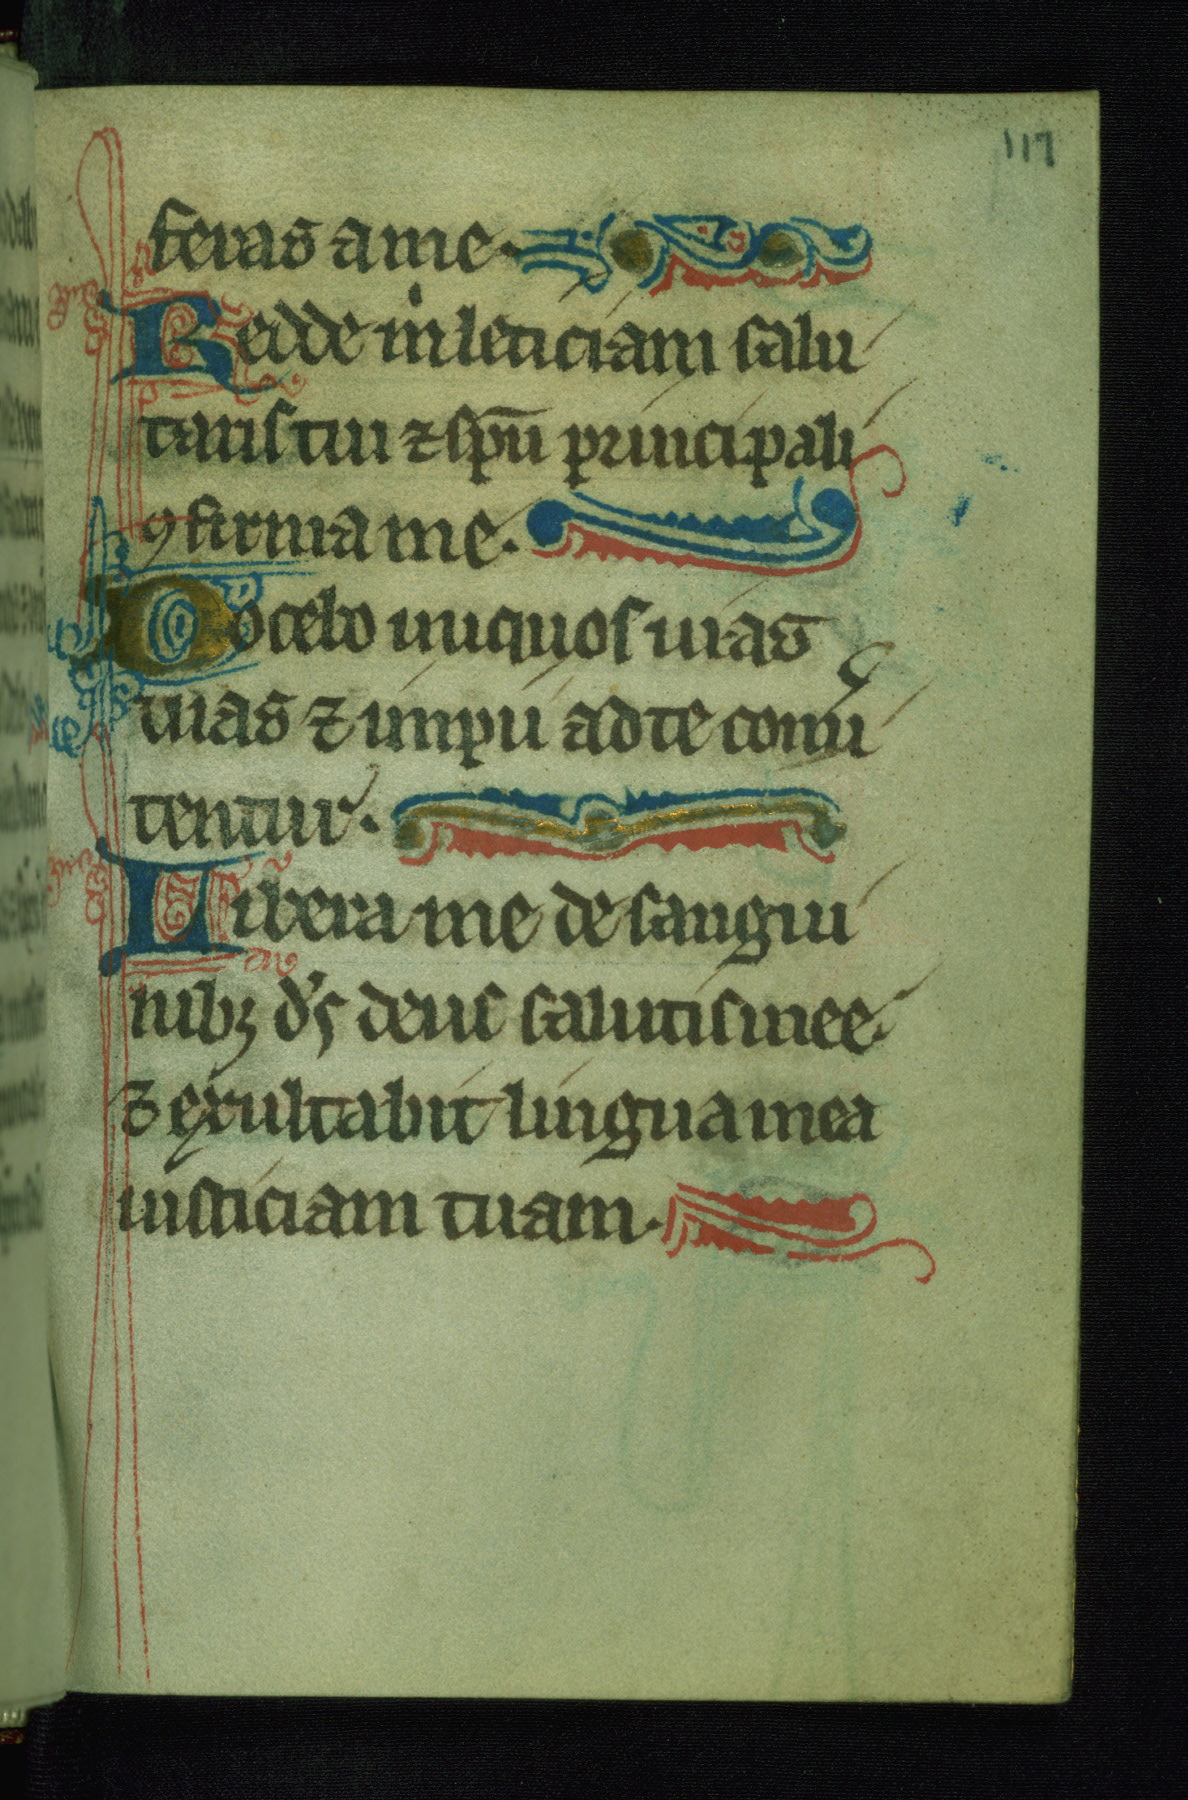 117
feras a me.
Redde m̊ leticiam salu
taris tui ⁊ sp̄u principali
ꝯfirma me.
Docebo iniquos uias
tuas ⁊ impii ad te conu͛
tentur.
Libera me de sangui
nibꝫ d's deus salutis mee.
⁊ exultabit lingua mea
iusticiam tuam.